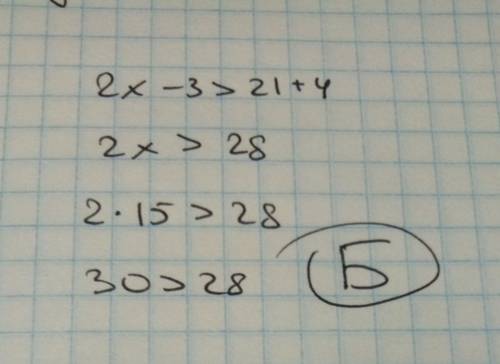 2x - 3 > 21 + 4
2x > 28
2 · 15 > 28
30 > 28
Б